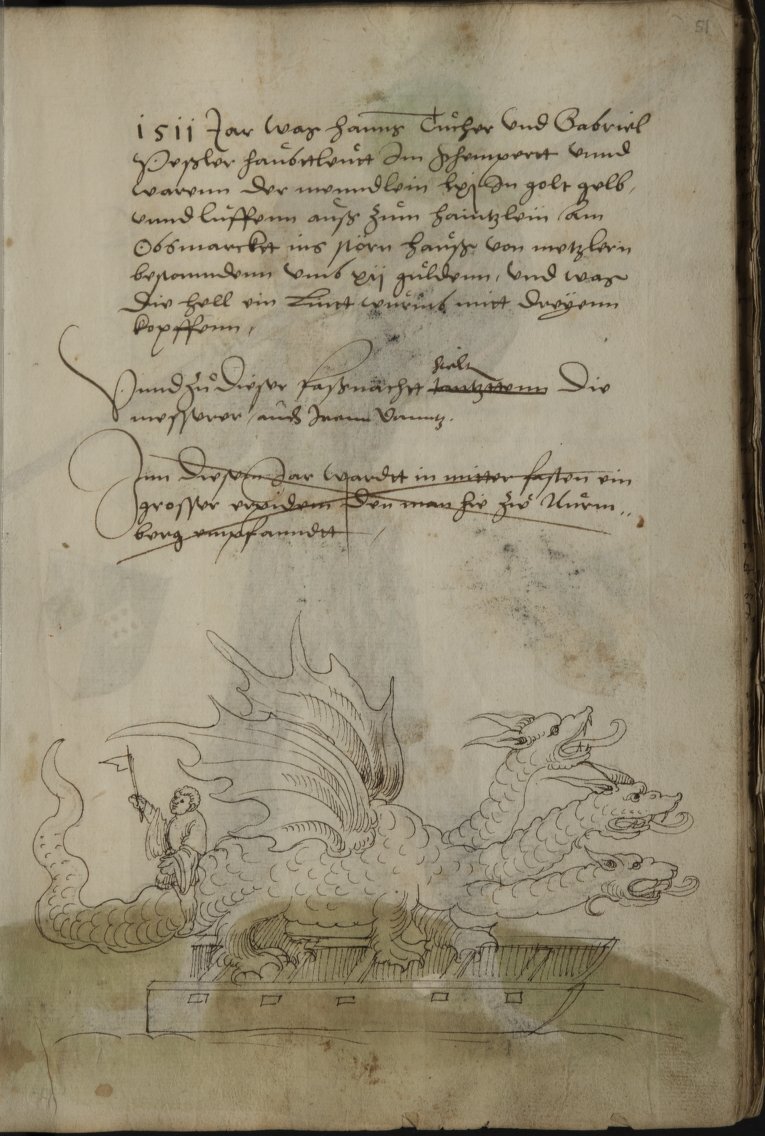 51
1511 Jar was hanns Tůcher vnd Gabriel
Peßler haŭbttleŭtt Im Schempertt vnnd
warenn der menndlein lxj In golt gelb,
vnnd lŭffenn aŭß Zŭm haintzlein Am
Obsmarckt ins störn haŭß von metzlern
bestanndenn vmb xij gŭldenn, vnd was
Die hell ein wŭrmb mitt dreyenn
kopffenn,
hielt
Vnnd zů Dieser faßnacht tanzttenn Die
messerer, aŭch Iren
Inn Diesem Jar wardtt in mitter fasten ein
grosser erpidem Den man hie Zŭ Nŭrm,,
berg empfanndtt